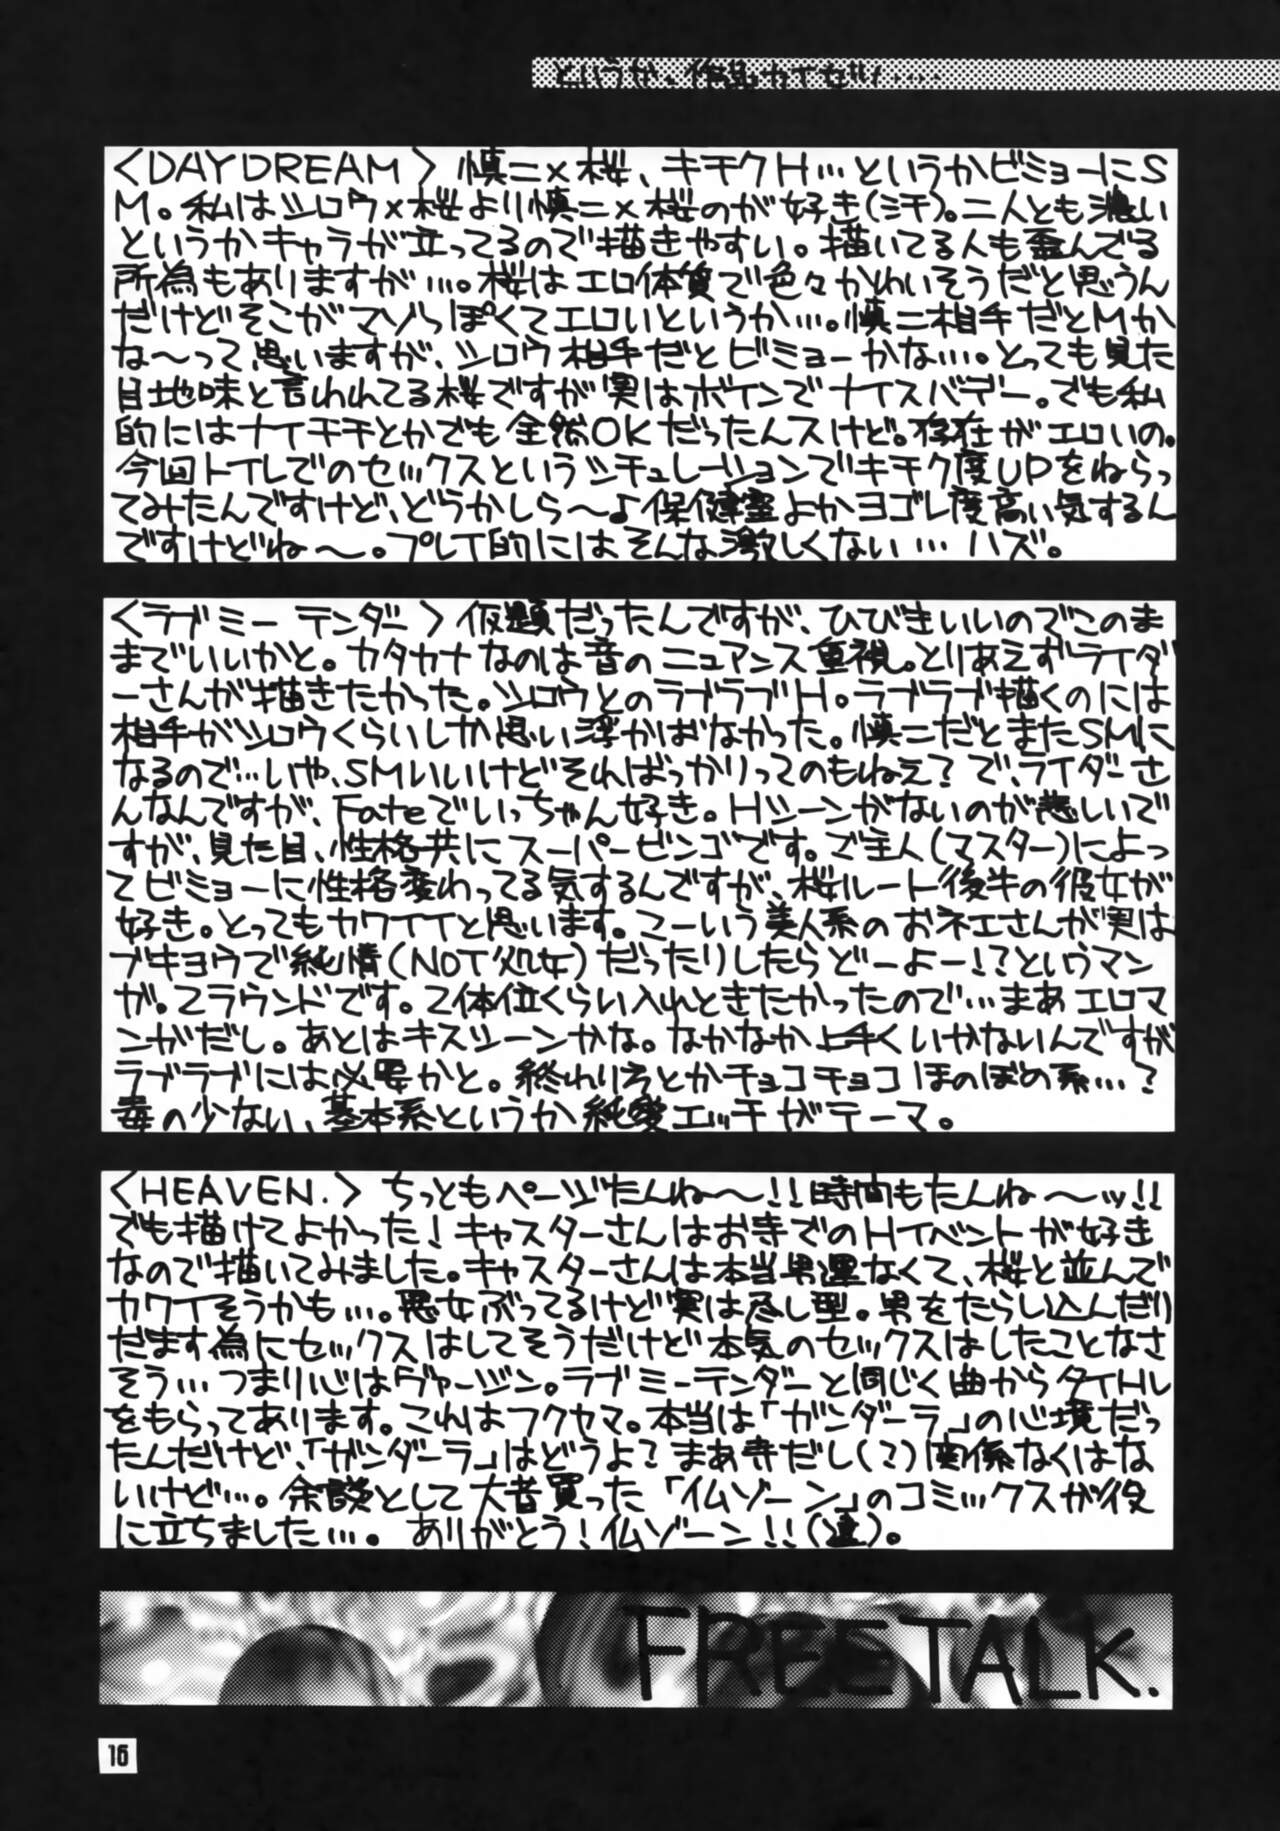 というか、作品カイセツ.....
<DAYDREAM> 慎二×桜、キチクH…というかビミョーにS
M。私はシロウ×桜より慎二×桜のが好き(汗)。二人とも濃い
というかキャラが立ってるので描きやすい。描いてる人も歪んでる
所為もありますが…。桜はエロ体質で色々かわいそうだと思うん
だけどそこがマゾっぽくてエロいというか…。慎二相手だとMか
な〜って思いますが、シロウ相手だとビミョーかな…。とっても見た
目地味と言われてる桜ですが実はボインでナイスバデー。でも私
的にはナイチチとかでも全然OKだったんスけど。存在がエロいの。
今回トイレでのセックスというシチュレーションでキチク度UPをねらっ
てみたんですけど、どうかしら〜♪保健室よかヨゴレ度高い気するん
ですけどね〜。プレイ的にはそんな激しくない…ハズ。
<ラブ ミー テンダー> 仮題だったんですが、ひびきいいのでこのま
までいいかと。カタカナなのは音のニュアンス重視。とりあえずライダ
ーさんが描きたかった。シロウとのラブラブH。ラブラブ描くのには
相手がシロウくらいしか思い浮かばなかった。慎二だとまたSMに
なるので…いや、SMいいけどそればっかりってのもねえ?で、ライダーさ
んなんですが、Fateでいっちゃん好き。Hシーンがないのが悲しいで
すが、見た目、性格共にスーパービンゴです。ご主人(マスター)によっ
てビミョーに性格変わってる気するんですが、桜ルート後半の彼女が
好き。とってもカワイイと思います。こーいう美人系のおネエさんが実は
ブキヨウで純情(NOT処女)だったりしたらどーよー!?というマン
が。2ラウンドです。2体位くらい入れときたかったので…まあエロマ
ンがだし。あとはキスシーンかな。なかなか上手くいかないんですが
ラブラブには必要かと。終わり方とかチョコチョコほのぼの系…?
毒の少ない、基本系というか純愛エッチがテーマ。
<HEAVEN.> ちっともページたんね〜!!時間もたんね〜ッ!!
でも描けてよかった!キャスターさんはお寺でのHイベントが好き
なので描いてみました。キャスターさんは本当男運なくて、桜と並んで
カワイそうかも…。悪女ぶってるけど実は尽し型。男をたらし込んだり
だます為にセックスはしてそうだけど本気のセックスはしたことなさ
そう…つまり心はヴァージン。ラブミーテンダーと同じく曲からタイトル
をもらってあります。これはフクヤマ。本当は「ガンダーラ」の心境だっ
たんだけど、「ガンダーラ」はどうよ?まあ寺だし(?)関係なくはな
いけど…。余談として大昔買った「仏ゾーン」のコミックスが役
に立ちました…。ありがとう!仏ゾーン!!(違)。
FREETALK.
16